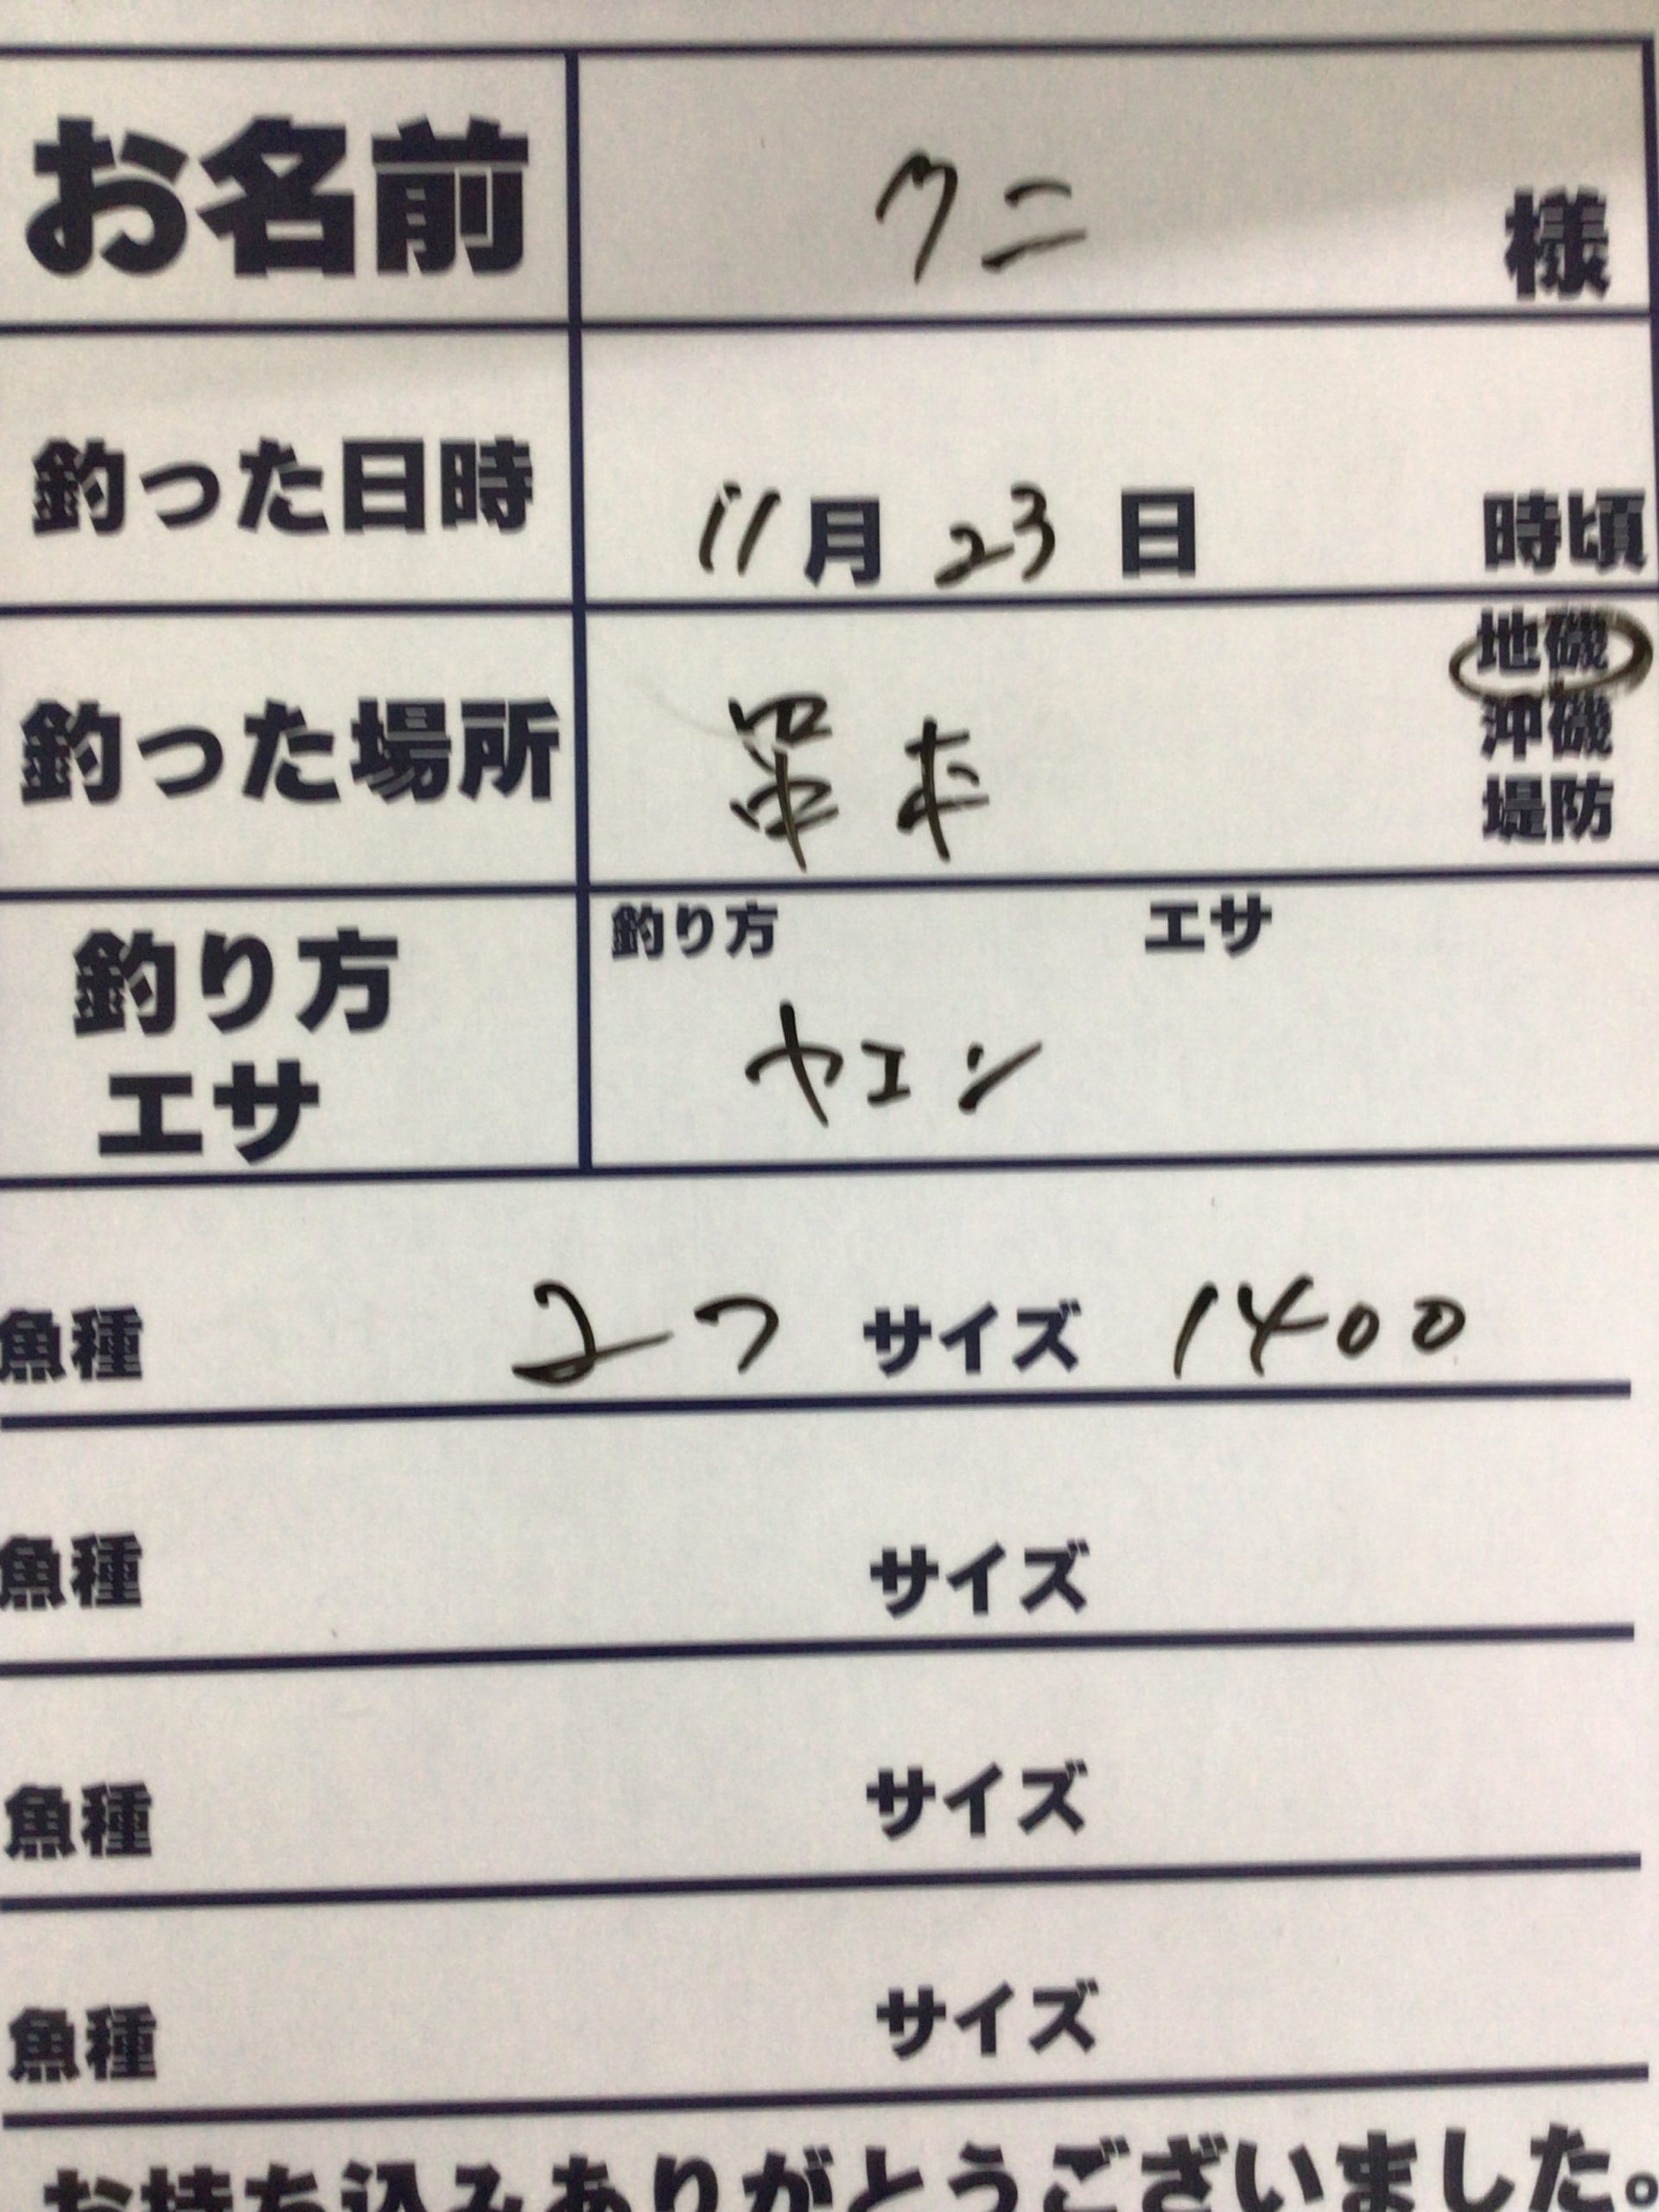 お名前 クニ 様
釣った日時 11月23日 時頃
釣った場所 地磯
沖磯
堤防
釣り方 エサ
釣り方 エサ ヤエン
魚種 2つ サイズ 1400
魚種 サイズ
魚種 サイズ
魚種 サイズ
お持ち込みありがとうございました。